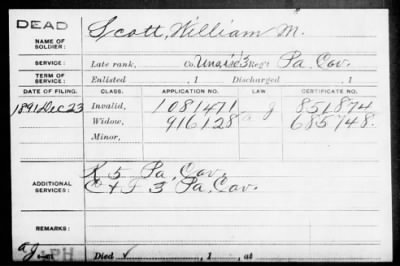 DEAD
NAME OF SOLDIER: Scott, William M.
SERVICE: Late rank, Co. Reg't Pa. Cav.
TERM OF SERVICE: Enlisted , 1 Discharged , 1
DATE OF FILING. CLASS. APPLICATION NO. LAW CERTIFICATE NO.
1891 Dec 23 Invalid, 1081471 851874
Widow, 916128 a g 685748.
Minor,
ADDITIONAL SERVICES: K 5 Pa. Cav.
3 Pa. Cav.
REMARKS:
PH Died , 1 , at